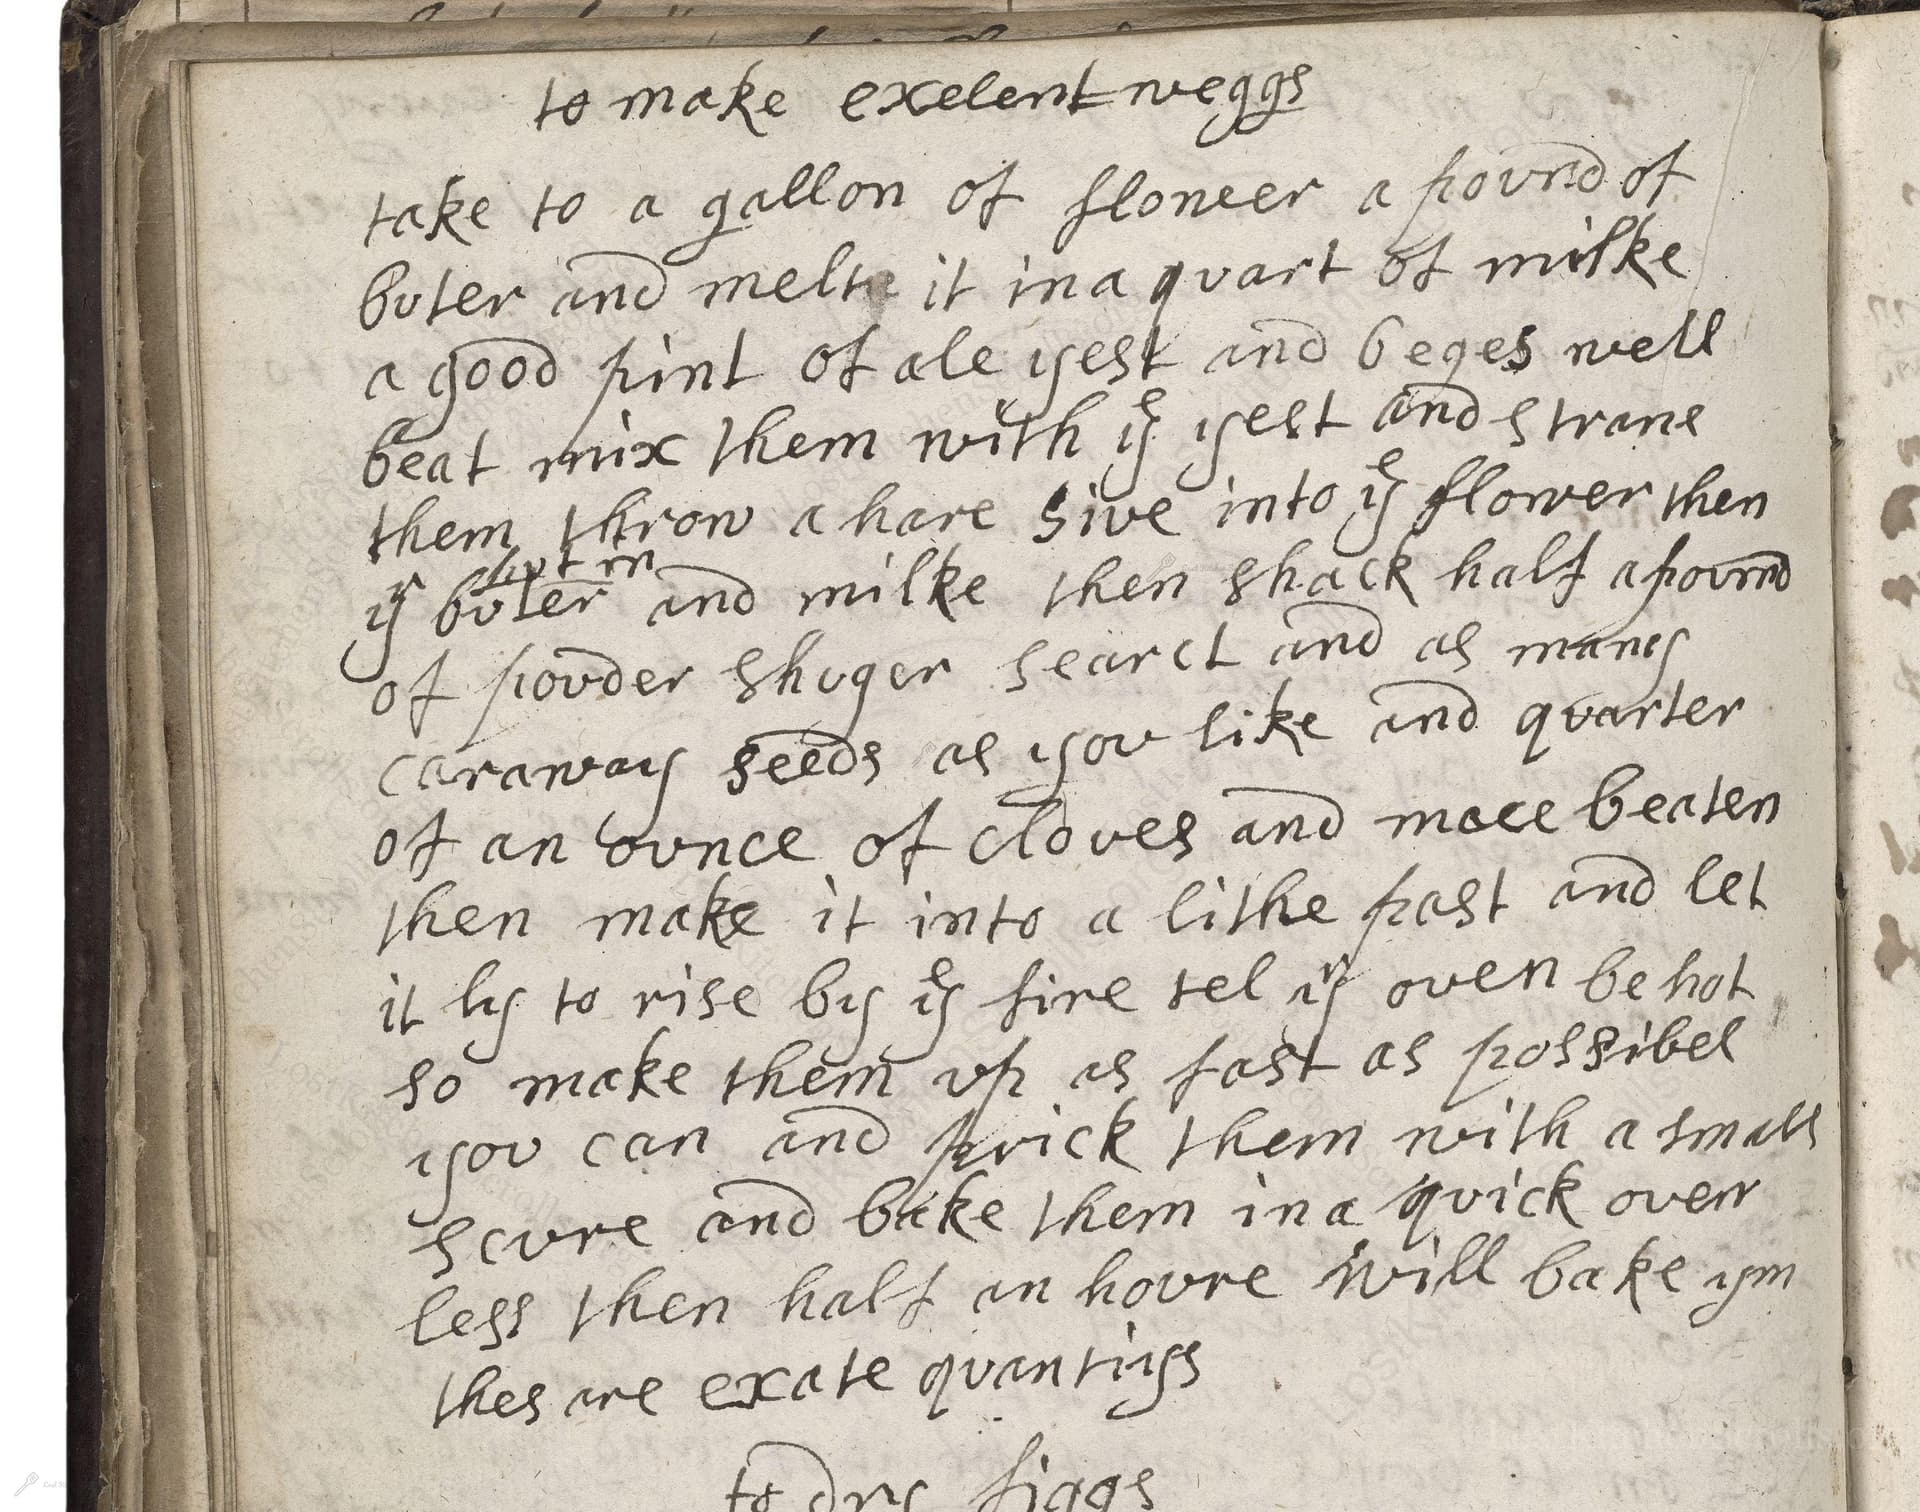 to make exelent weggs
take to a gallon of floweer a povnd of
bvter and melt it in a qvart of milke
a good pint of ale yest and 6 eges well
beat mix them with yͤ yest and strane
them throw a hare sive into yͤ flower then
put in
yͬ bvter and milke then shack half a povnd
of povder shvger searct and as many
caraway seeds as yov like and qvarter
of an ovnce of cloves and mace beaten
then make it into a lithe past and let
it ly to rise by yͤ fire tel yͬ oven be hot
so make them vp as fast as possibel
yov can and prick them with a small
scvre and bake them in a qvick oven
less then half an hovre will bake ym
thes are exate qvantiys
to dry figgs